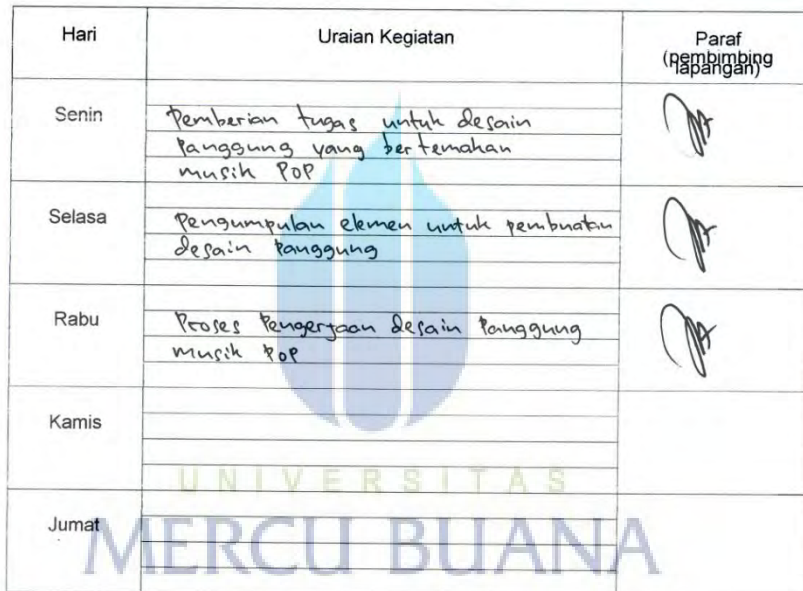 Hari Uraian Kegiatan Paraf
(pembimbing
lapangan)
Senin
Pemberian tugas untuk desain
Panggung yang bertemakan
musik POP
Selasa
Pengumpulan elemen untuk pembuatan
desain Panggung
Rabu
Proses Pengerjaan desain Panggung
musik POP
Kamis
UNIVERSITAS
Jumat
MERCU BUANA